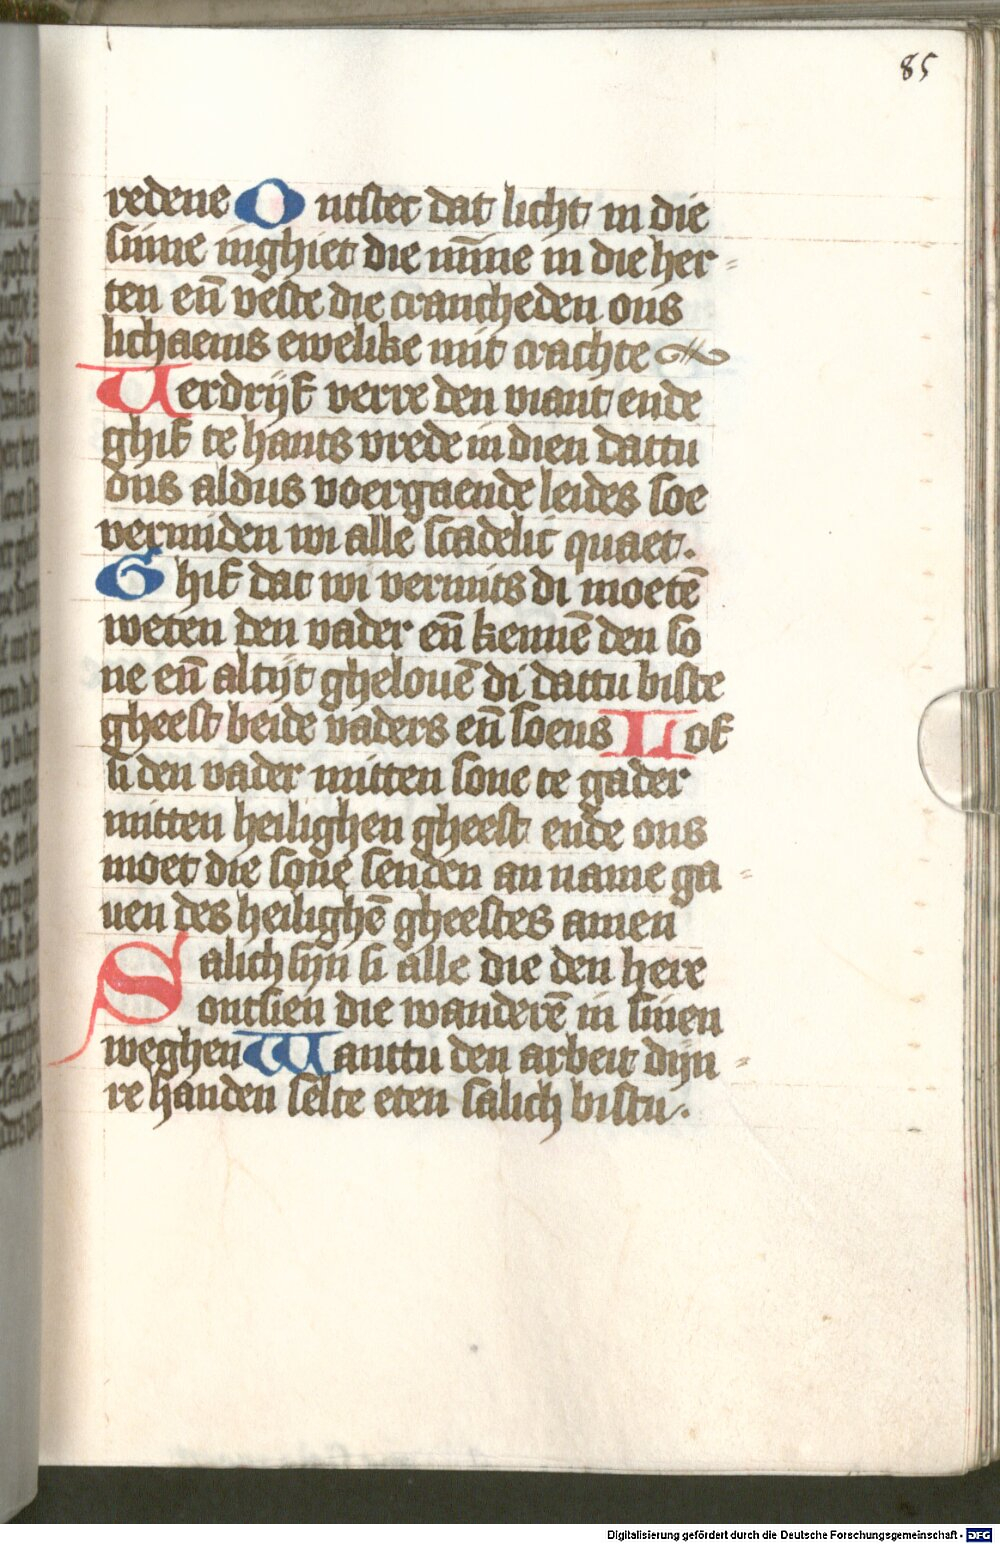 85
redene Ontstect dat licht in die
sinne inghiet die mīne in die her-
ten eñ veste die crancheden ons
lichaems ewelike mit crachte
Verdrijf verre den viant ende
ghif te hants vrede in dien dattu
ons aldus voergaende leides soe
vermiden wi alle scadelic quaet.
Ghif dat wi vermits di moetē
weten den vader eñ kennē den so
ne eñ altijt ghelouē di dattu biste
gheest beide vaders eñ soens Lof
si den vader mitten sone te gader
mitten heilighen gheest ende ons
moet die sone senden an name ga-
uen des heilighē gheestes amen
Salich sijn si alle die den here
ontsien die wanderē in sinen
weghen Wanttu den arbeit dijn-
re handen selte eten salich bistu.
Digitalisierung gefördert durch die Deutsche Forschungsgemeinschaft - DFG